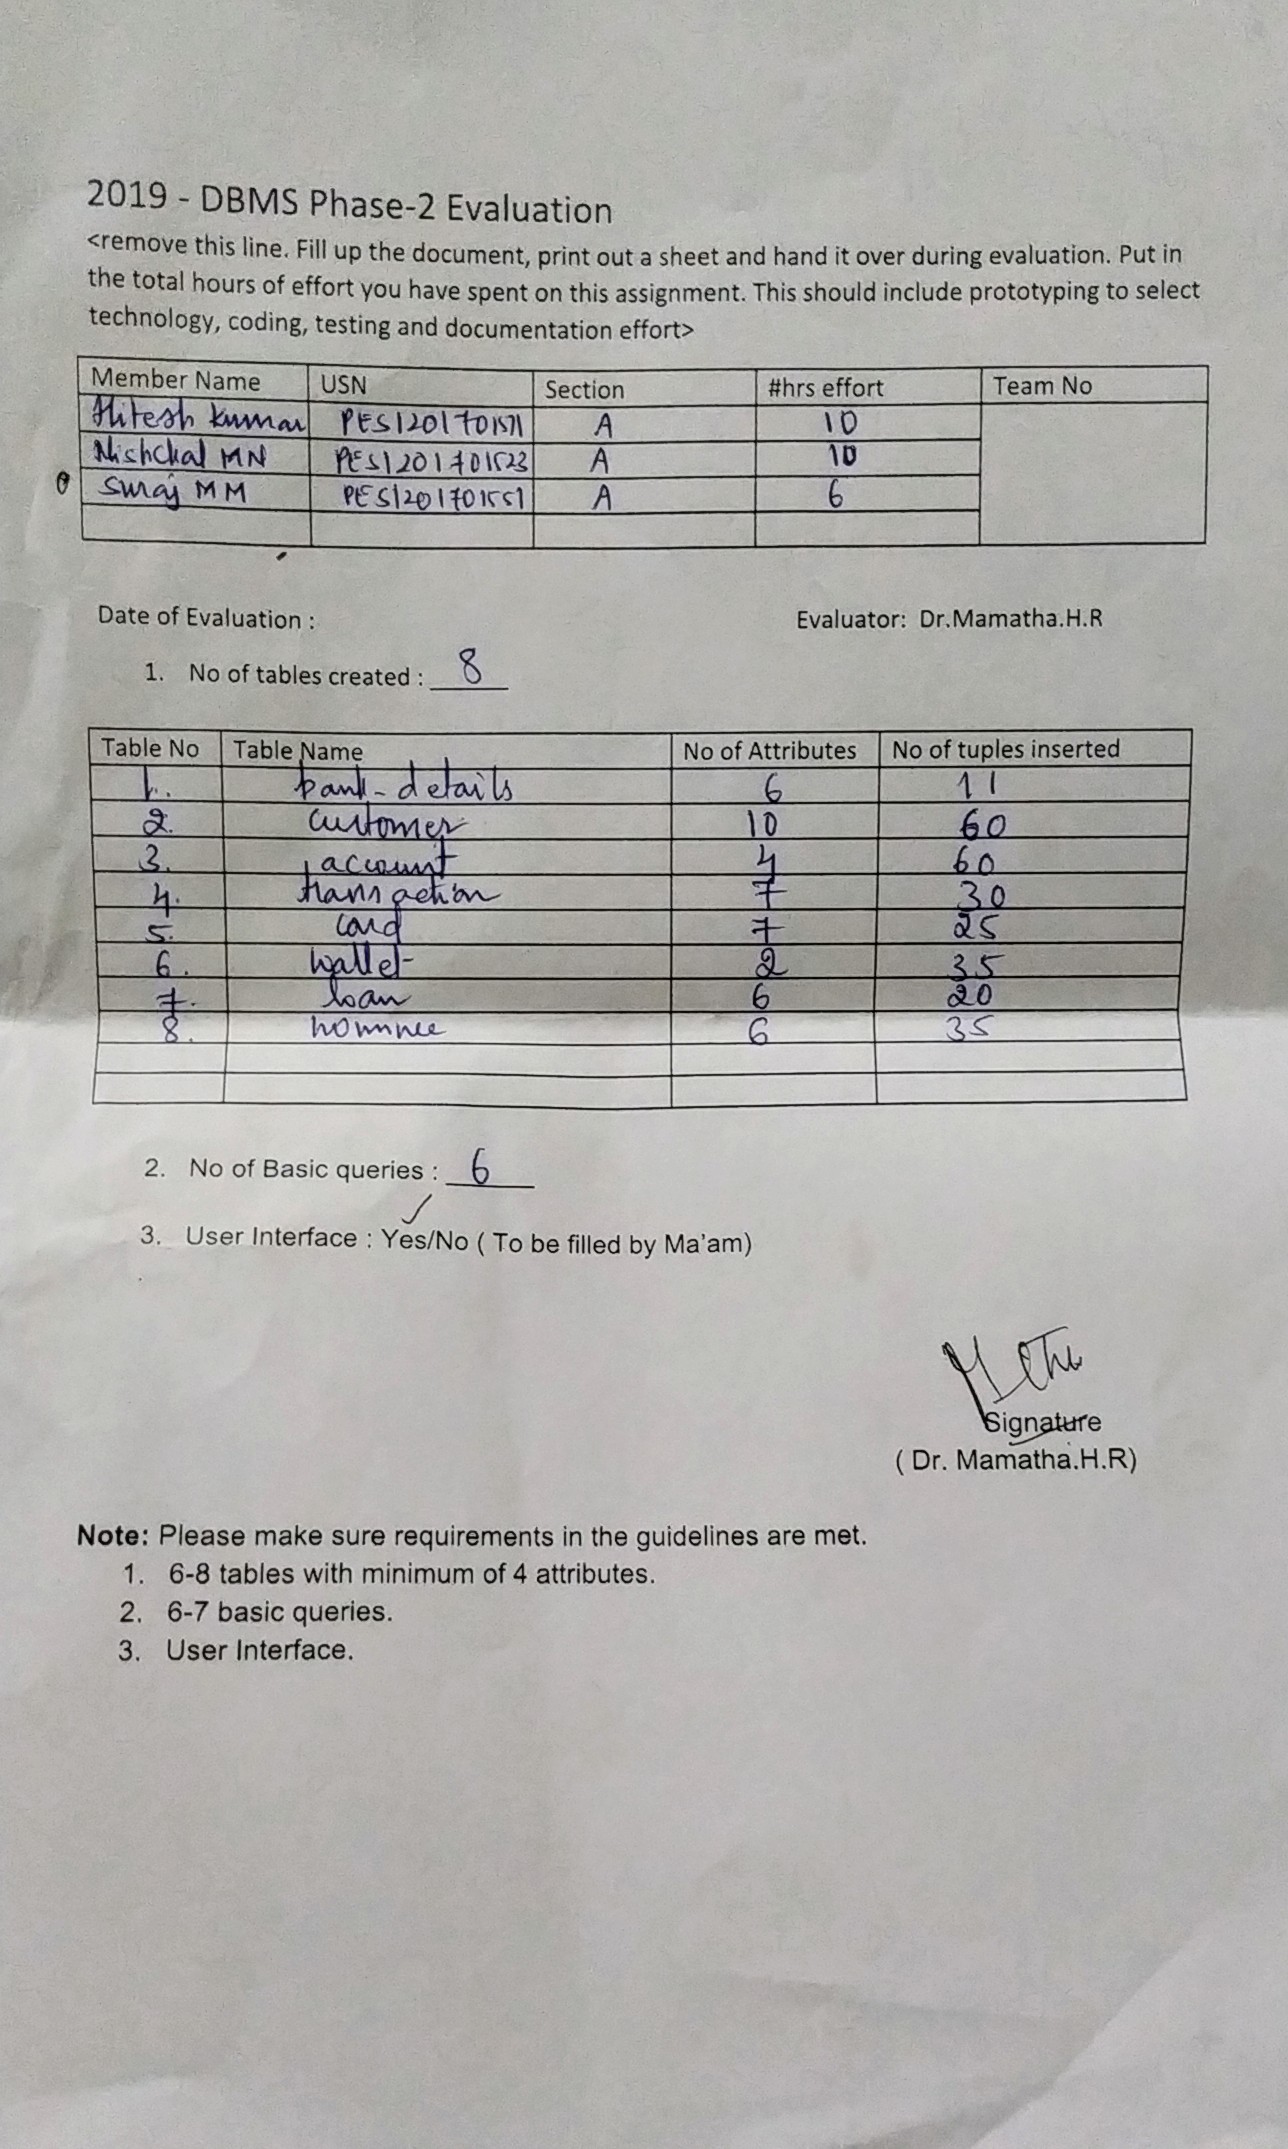 2019 - DBMS Phase-2 Evaluation
<remove this line. Fill up the document, print out a sheet and hand it over during evaluation. Put in
the total hours of effort you have spent on this assignment. This should include prototyping to select
technology, coding, testing and documentation effort>
Member Name USN Section #hrs effort Team No
Hitesh Kumar PES1201701571 A 10
Nishchal MN PES1201701523 A 10
Suraj MM PES1201701551 A 6
Date of Evaluation : Evaluator: Dr.Mamatha.H.R
1. No of tables created : 8
Table No Table Name No of Attributes No of tuples inserted
1. bank-details 6 11
2. customer 10 60
3. account 4 60
4. transaction 7 30
5. card 7 25
6. wallet 2 35
7. loan 6 20
8. nominee 6 35
2. No of Basic queries : 6
3. User Interface : Yes/No ( To be filled by Ma'am)
Signature
( Dr. Mamatha.H.R)
Note: Please make sure requirements in the guidelines are met.
1. 6-8 tables with minimum of 4 attributes.
2. 6-7 basic queries.
3. User Interface.